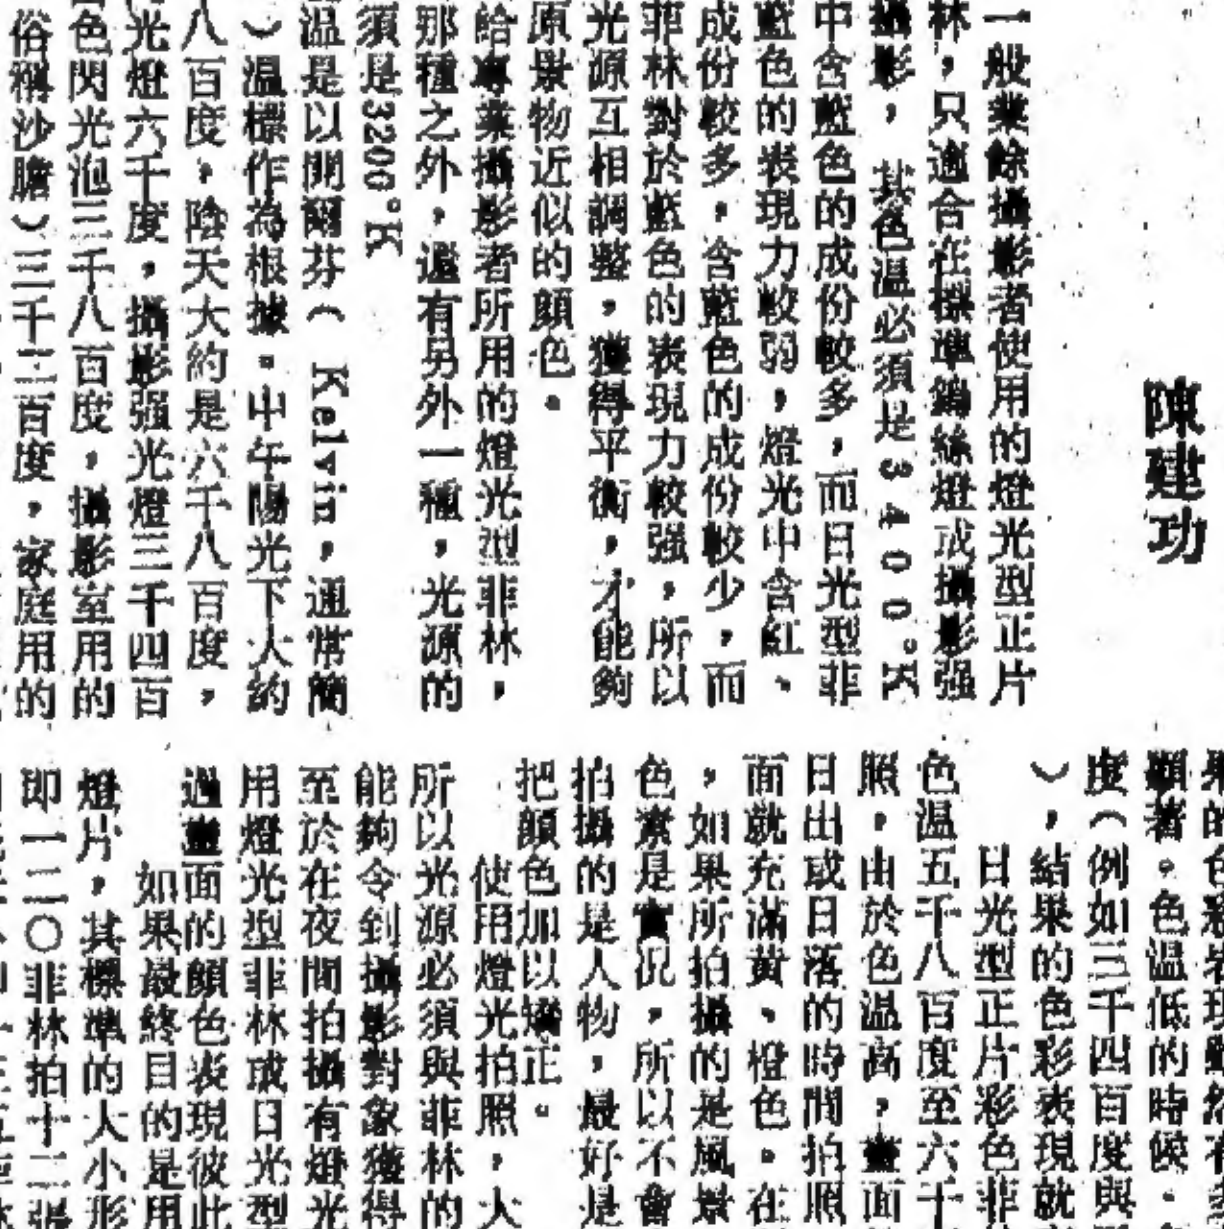 陳建功
一般業餘攝影者使用的燈光型正片
林，只適合在標準鎢絲燈或攝影强
攝影，其色温必須是3400°K
中含藍色的成份較多，而日光型菲
藍色的表現力較弱，燈光中含紅、
成份較多，含藍色的成份較少，而
菲林對於藍色的表現力較强，所以
光源互相調整，獲得平衡，才能夠
原景物近似的顏色。
給專業攝影者所用的燈光型菲林，
那種之外，還有另外一種，光源的
須是3200°K
温是以開爾芬（Kelvin，通常簡
）温標作為根據。中午陽光下大約
八百度，陰天大約是六千八百度，
光燈六千度，攝影强光燈三千四百
色閃光泡三千八百度，攝影室用的
俗稱沙膽）三千二百度，家庭用的
果的色彩
顯著。色温低的時候。
度（例如三千四百度與
），結果的色彩表現就
日光型正片彩色菲
色温五千八百度至六千
照，由於色温高，畫面
日出或日落的時間拍照
面就充滿黃、橙色。在
，如果所拍攝的是風景
色素是實況，所以不會
拍攝的是人物，最好是
把顏色加以矯正。
使用燈光拍照，大
所以光源必須與菲林的
能夠令到攝影對象獲得
至於在夜間拍攝有燈光
用燈光型菲林或日光型
過畫面的顏色表現彼此
如果最終目的是用
燈片，其標準的大小形
即一二〇菲林拍十二張